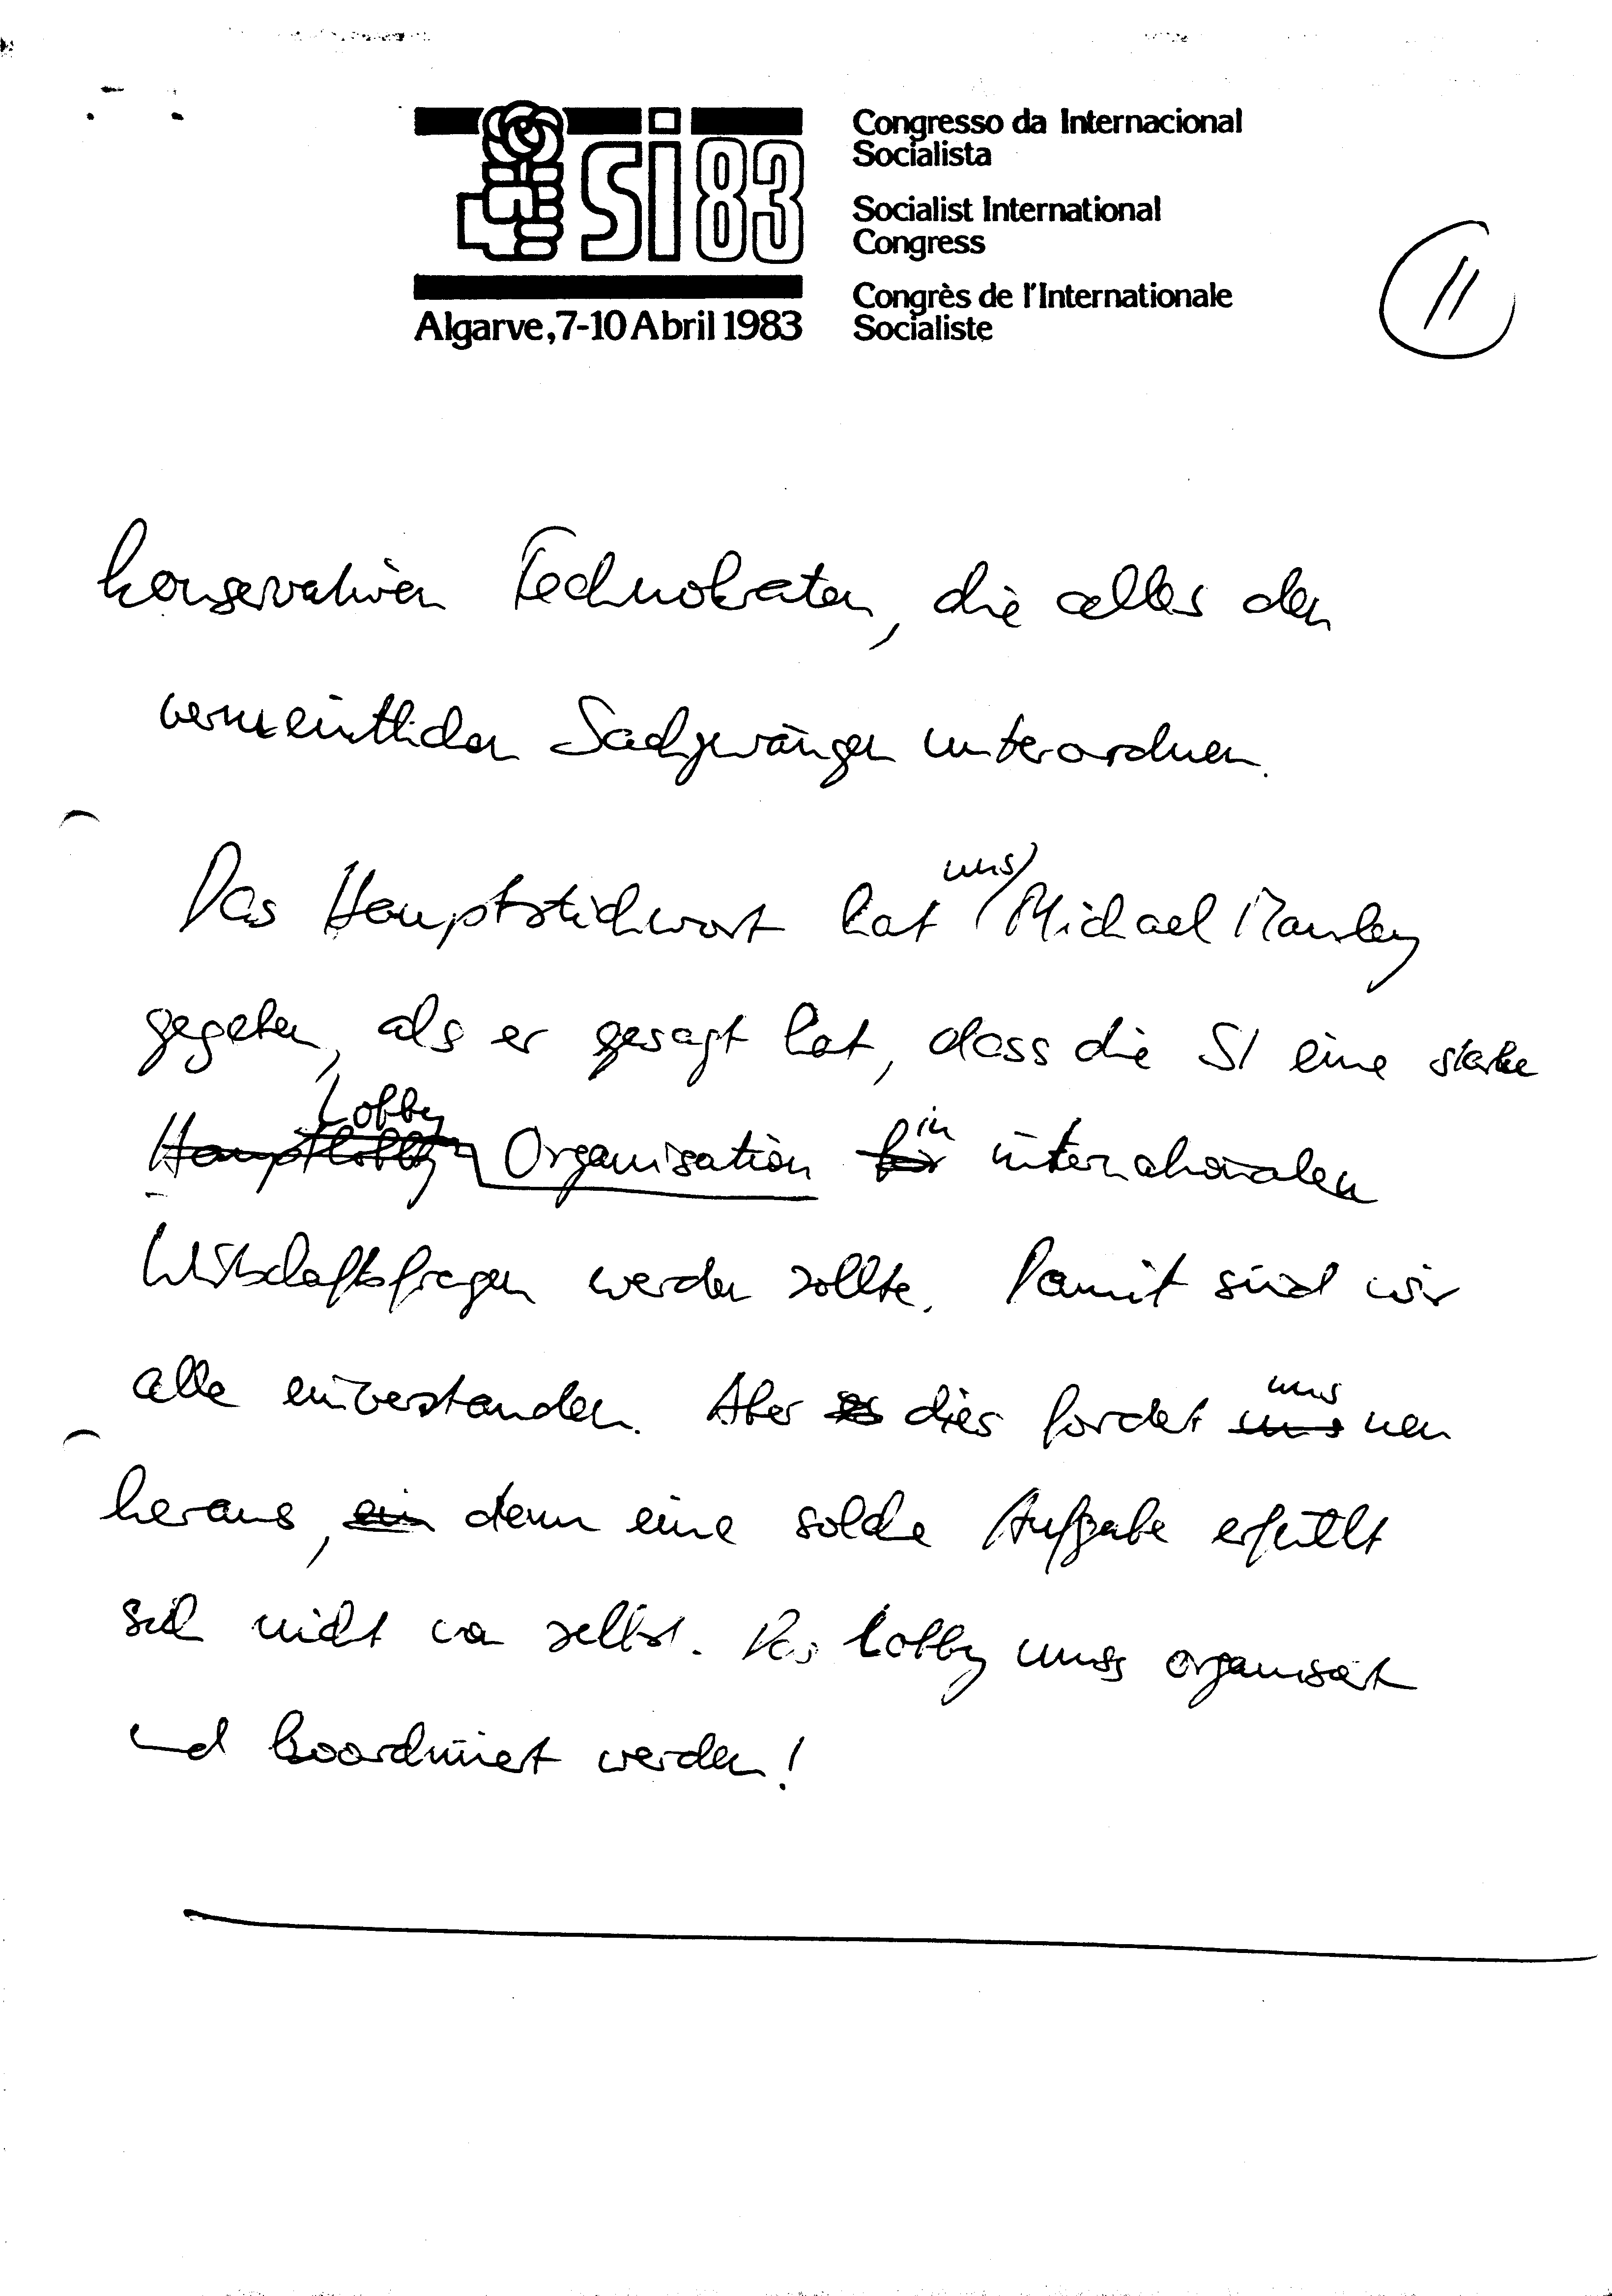 SI 83
Algarve, 7-10 Abril 1983
Congresso da Internacional
Socialista
Socialist International
Congress
Congrès de l'Internationale
Socialiste
11
konservativen Technokraten, die alles den
vermeintlichen Sachzwängen unterordnen.
uns
Das Hauptstichwort hat Michael Manley
gegeben, als er gesagt hat, dass die SI eine starke
Lobby in
Hauptlobby Organisation für internationalen
Wirtschaftsfragen werden sollte. Damit sind wir
uns
alle einverstanden. Aber es dies fordert uns neu
heraus, ein denn eine solche Aufgabe erfüllt
sich nicht von selbst. Das Lobby muss organisiert
und koordiniert werden!